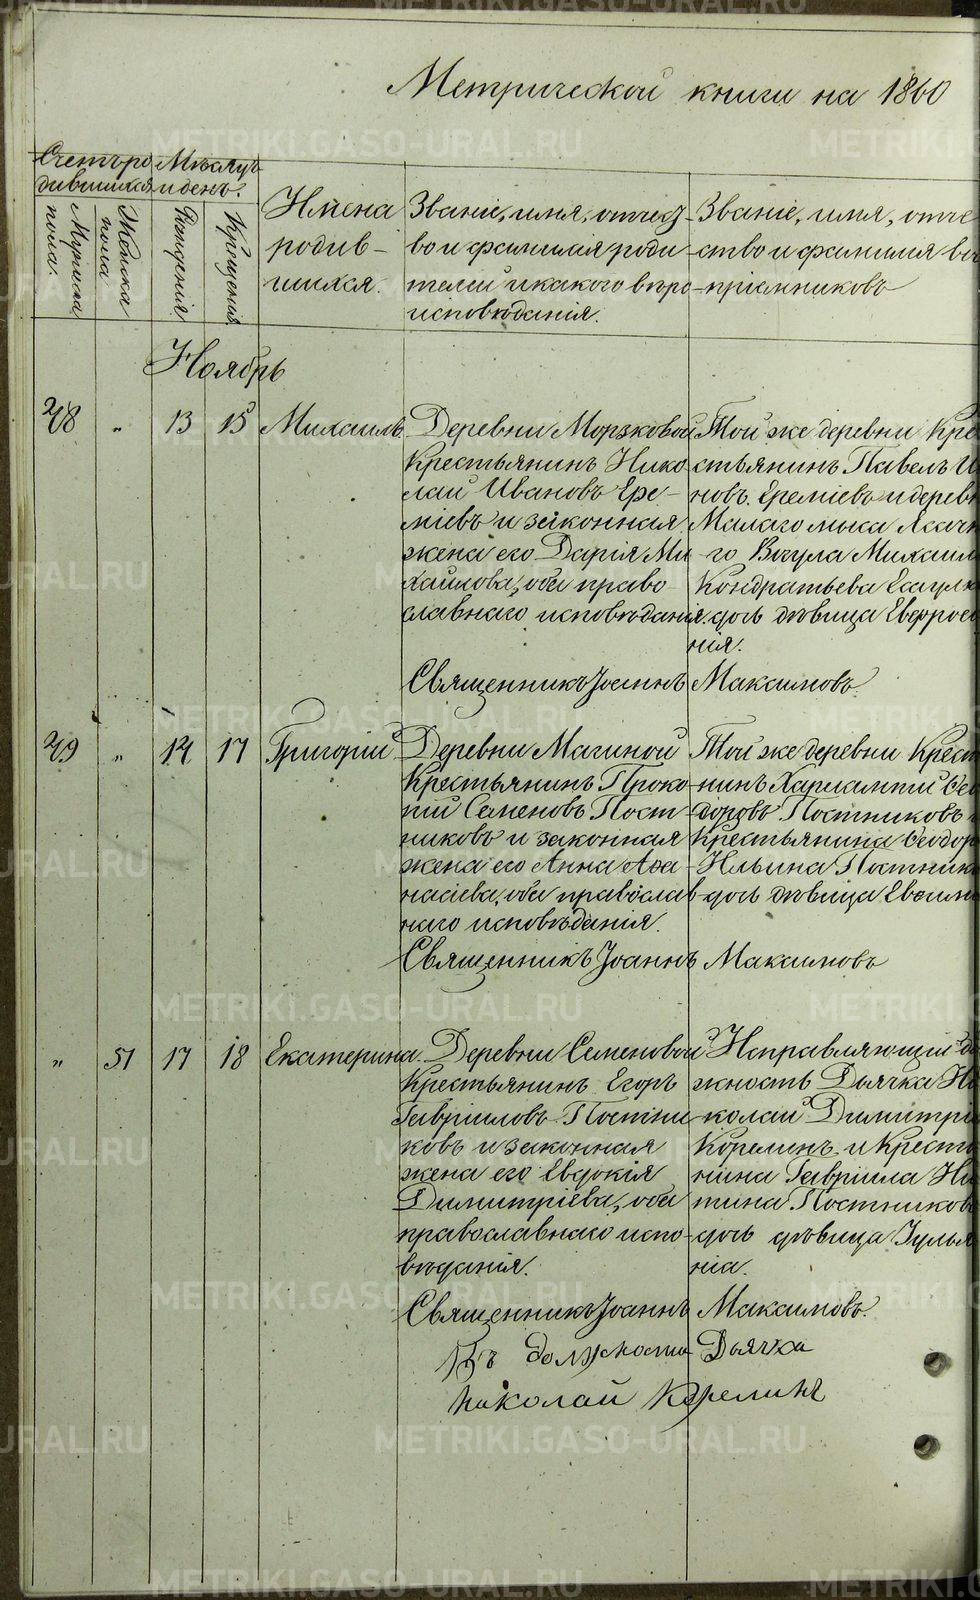 Метрической книги на 1860
Счетъ ро
дившихся
Мѣсяцъ
и день.
Мужска
пола.
Женска
пола
Рожденія
Крещенія
Имена
родив-
шихся.
Званіе, имя, отчес-
во и фамилія роди
телей и какого вѣро
исповѣданія.
Званіе, имя, отче
ство и фамилія во
пріемниковъ
Ноябрь
48 „ 13 15 Михаилъ.
Деревни Морзковой
Крестьянинъ Нико
лай Ивановъ Ере-
мѣевъ и законная
жена его Дарія Ми
хайлова, оба право
славнаго исповѣданія.
Той же деревни Кре
стьянинъ Павелъ И
новъ Еремѣевъ и дерев
Малаго мыса Ясачн
го Вогула Михаил
Кондратьева
дочь дѣвица Евфрос
нія.
Священникъ Іоаннъ Максимовъ.
49 „ 14 17 Григорій
Деревни Магиной
Крестьянинъ Проко
пій Семеновъ Пост
никовъ и законная
жена его Анна Аѳа
насіева, оба православ
наго исповѣданія.
Той же деревни Крест
нинъ Харлампій Ѳео
доровъ Постниковъ
Крестьянина Ѳеодор
Ильина Постник
дочь дѣвица
Священникъ Іоаннъ Максимовъ
„ 51 17 18 Екатерина.
Деревни Семеновой
Крестьянинъ Егоръ
Гавріиловъ Постни
ковъ и законная
жена его Евдокія
Димитріева, оба
православнаго испо-
вѣданія.
Исправляющій до
жность Дьячка Ни
колай Димитрі
Корелинъ и Кресть
нина Гавріила Ни
тина Постникова
дочь дѣвица Іулья
ніа.
Священникъ Іоаннъ Максимовъ.
Въ должности Дьячка
Николай Корелинъ
METRIKI.GASO-URAL.RU